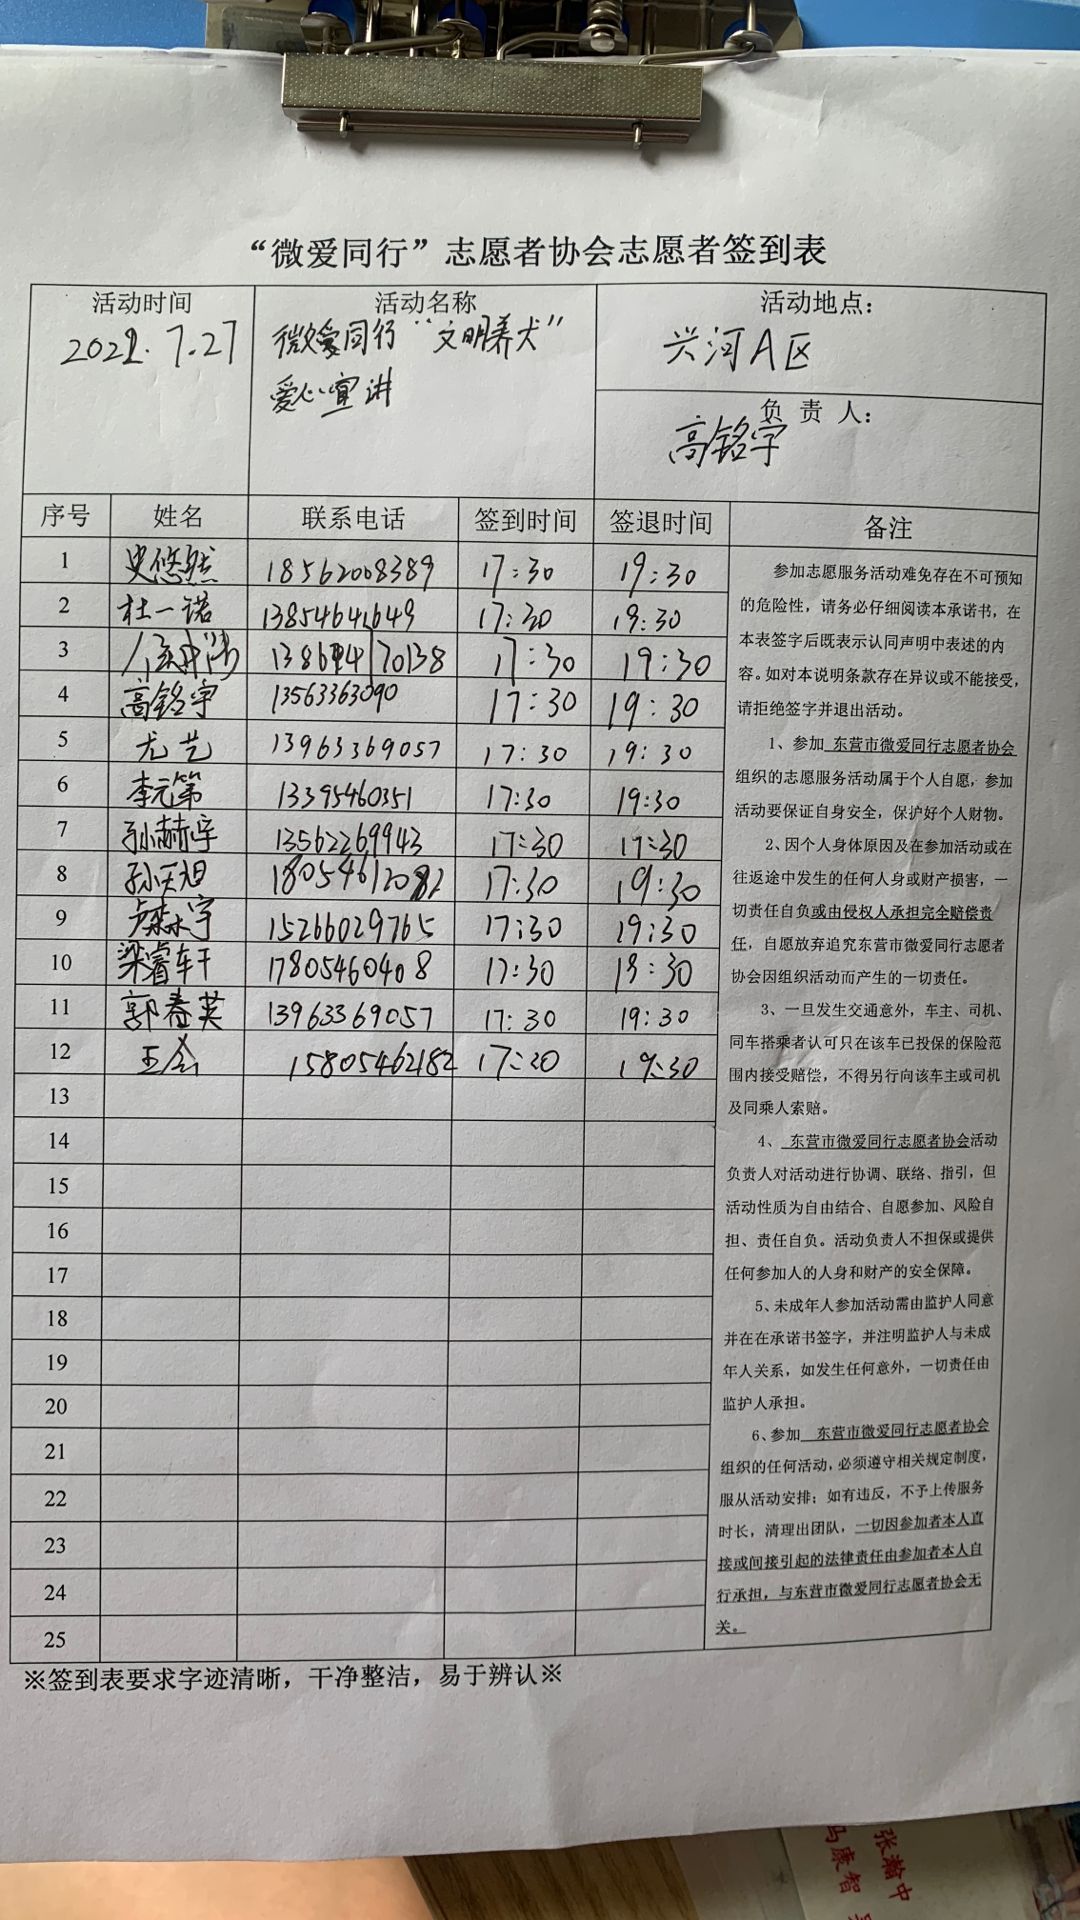 “微爱同行”志愿者协会志愿者签到表
活动时间
2022.7.27
活动名称
微爱同行“文明养犬”
爱心宣讲
活动地点：
兴河A区
负 责 人：
高铭宇
序号 姓名 联系电话 签到时间 签退时间 备注
1 史悠然 18562008389 17:30 19:30
2 杜一诺 13854641649 17:30 19:30
3 170138 17:30 19:30
4 高铭宇 13563363090 17:30 19:30
5 尤艺 13963369057 17:30 19:30
6 李元第 13395460351 17:30 19:30
7 孙赫宇 13562269943 17:30 17:30
8 孙天旭 18054612082 17:30 19:30
9 卢森宇 15266029765 17:30 19:30
10 梁睿轩 17805460408 17:30 19:30
11 郭春英 13963369057 17:30 19:30
12 15805462182 17:30 19:30
13
14
15
16
17
18
19
20
21
22
23
24
25
参加志愿服务活动难免存在不可预知
的危险性，请务必仔细阅读本承诺书，在
本表签字后既表示认同声明中表述的内
容。如对本说明条款存在异议或不能接受，
请拒绝签字并退出活动。
1、参加 东营市微爱同行志愿者协会
组织的志愿服务活动属于个人自愿，参加
活动要保证自身安全，保护好个人财物。
2、因个人身体原因及在参加活动或在
往返途中发生的任何人身或财产损害，一
切责任自负或由侵权人承担完全赔偿责
任，自愿放弃追究东营市微爱同行志愿者
协会因组织活动而产生的一切责任。
3、一旦发生交通意外，车主、司机、
同车搭乘者认可只在该车已投保的保险范
围内接受赔偿，不得另行向该车主或司机
及同乘人索赔。
4、 东营市微爱同行志愿者协会活动
负责人对活动进行协调、联络、指引，但
活动性质为自由结合、自愿参加、风险自
担、责任自负。活动负责人不担保或提供
任何参加人的人身和财产的安全保障。
5、未成年人参加活动需由监护人同意
并在在承诺书签字，并注明监护人与未成
年人关系，如发生任何意外，一切责任由
监护人承担。
6、参加 东营市微爱同行志愿者协会
组织的任何活动，必须遵守相关规定制度，
服从活动安排；如有违反，不予上传服务
时长，清理出团队，一切因参加者本人直
接或间接引起的法律责任由参加者本人自
行承担，与东营市微爱同行志愿者协会无
关。
※签到表要求字迹清晰，干净整洁，易于辨认※
张瀚中
马康智